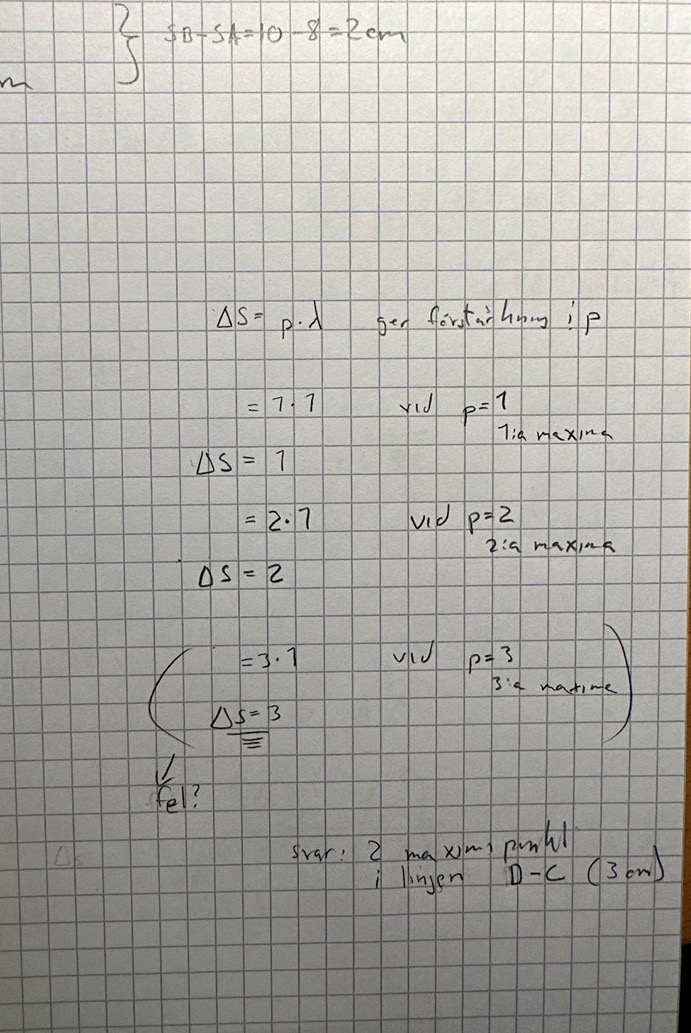 SB-SA=10-8=2cm
m
ΔS= p.λ ger förstärkning i p
= 1.1 vid p=1
1:a maxima
ΔS= 1
= 2.1 vid p=2
2:a maxima
ΔS = 2
=3.1 vid p=3
3:a maxima
ΔS=3
fel?
Δs
svar: 2 maximi punkt
i linjen D-C (3 cm)